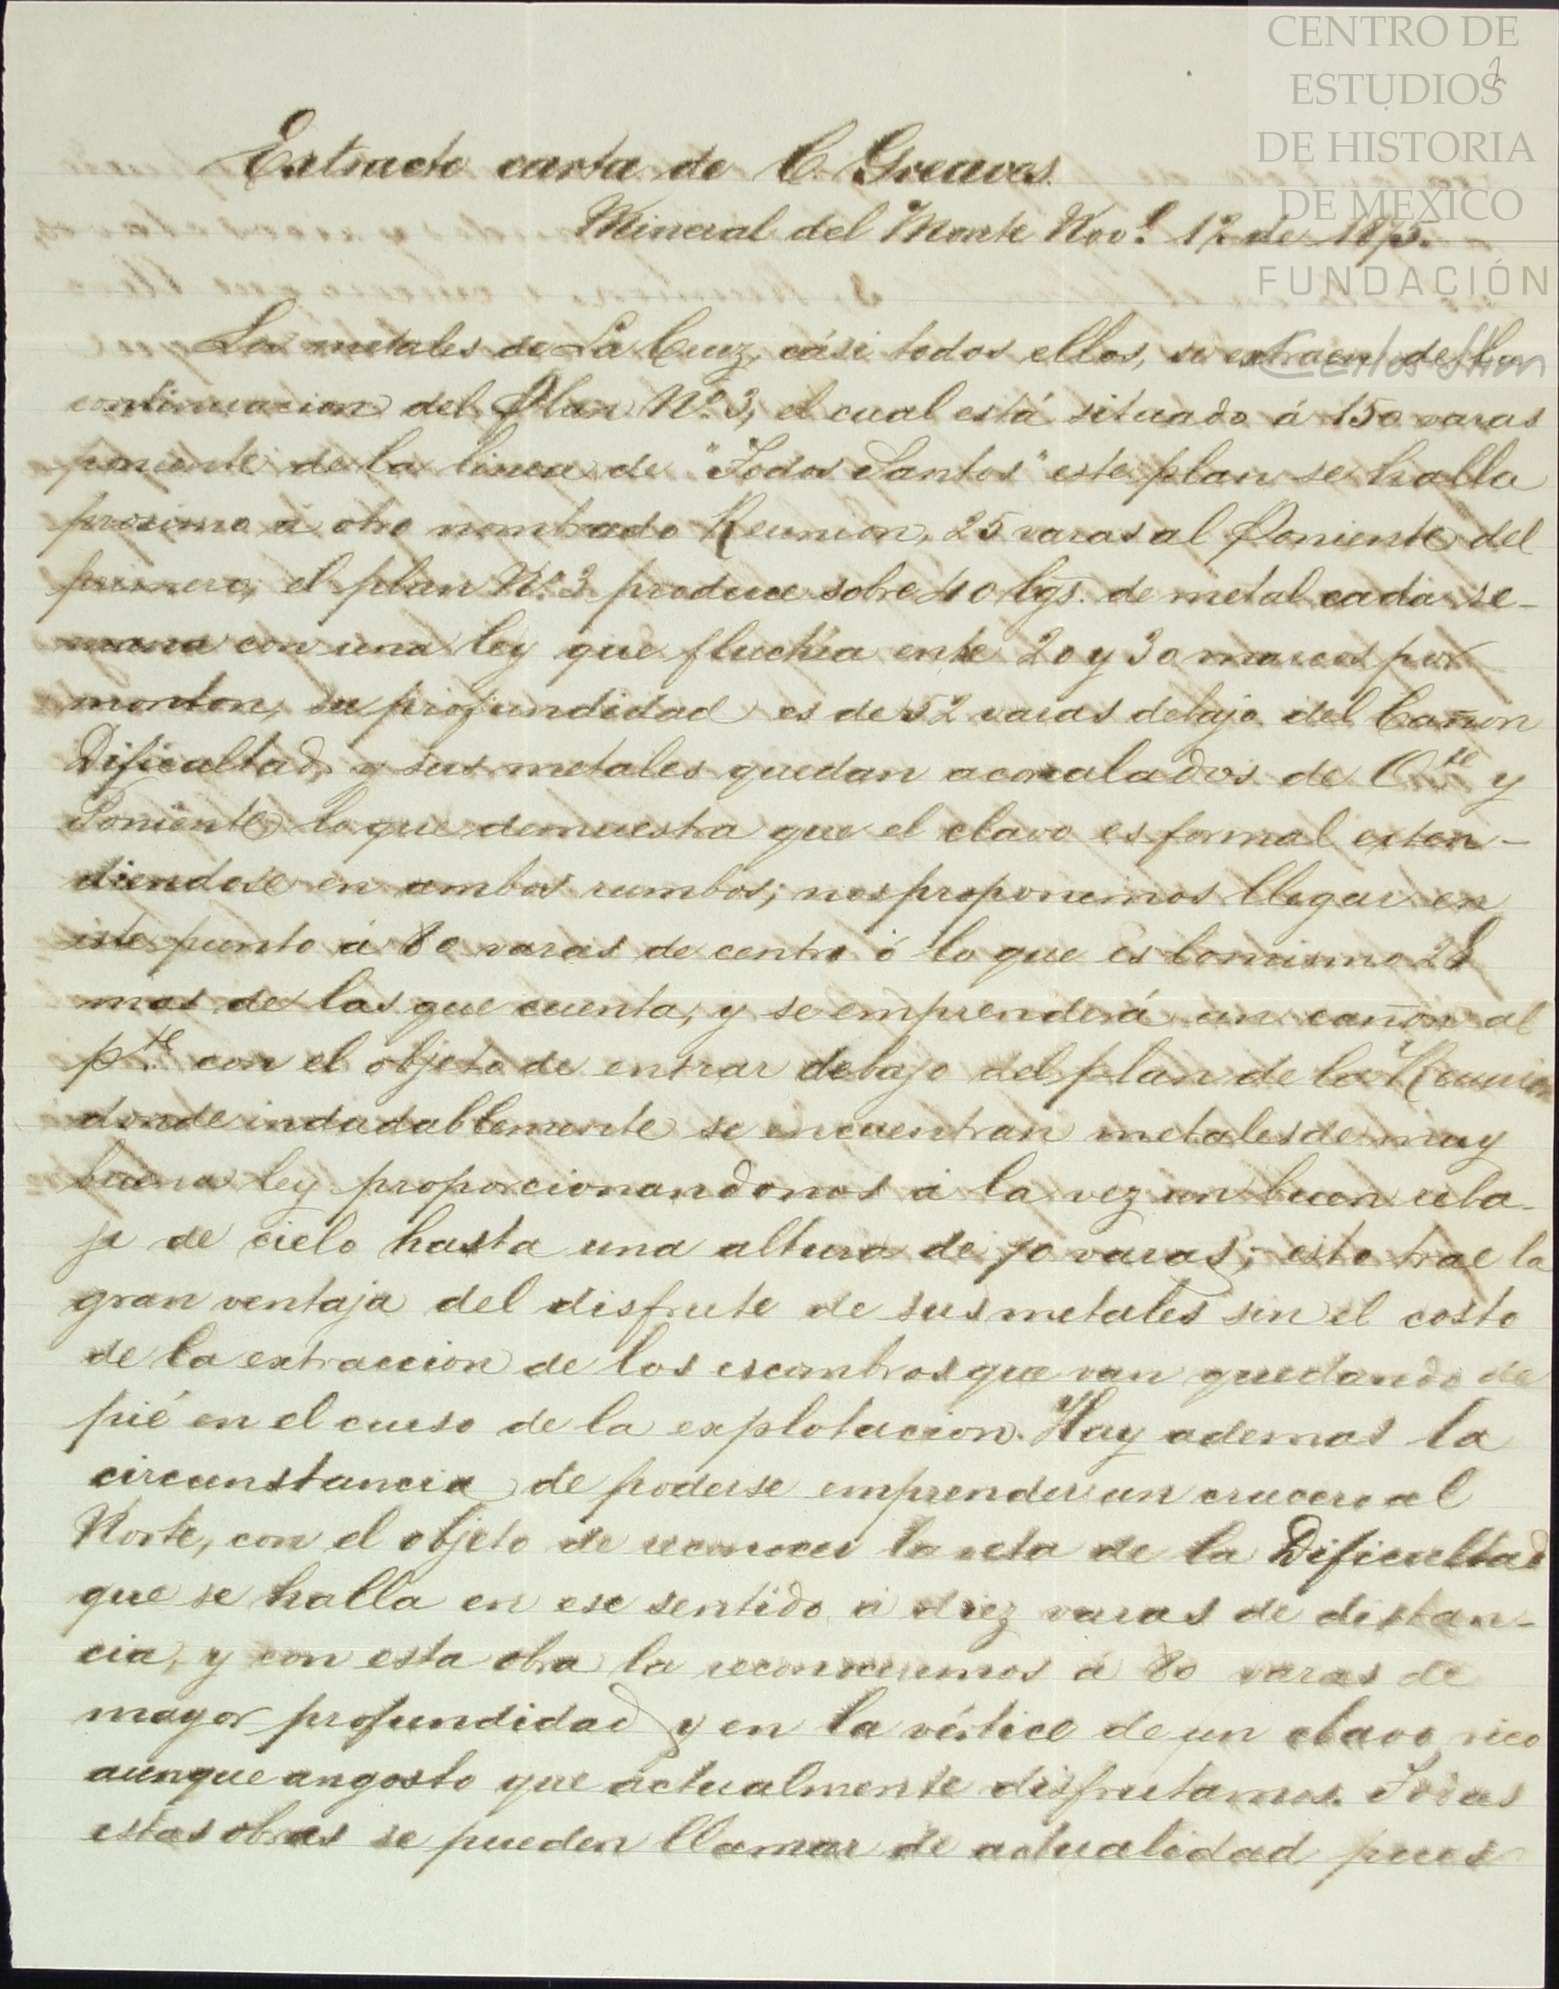 CENTRO DE
ESTUDIOS
DE HISTORIA
DE MEXICO
FUNDACIÓN
Carlos Slim
Extracto carta de C. Greaves.
Mineral del Monte Nov.e 12 de 1875.
Los metales de La Cruz, cási todos ellos, se extraen de la
continuacion del Plan No. 3, el cual está situado á 150 varas
poniente de la linea de "Todos Santos" este plan se halla
procsimo á otro nombrado Reunion, 25 varas al Poniente del
primero, el plan No. 3 produce sobre 40 bgs. de metal cada se-
mana con una ley que fluctúa ente 20 y 30 marcos por
monton, su profundidad es de 52 varas debajo del Cañon
Dificultad, y sus metales quedan acoralados de Ote y
Poniente lo que demuestra que el clavo es formal exten-
diendose en ambos rumbos; nos proponemos llegar en
este punto á 80 varas de centro ó lo que es lo mismo 28
mas de las que cuenta, y se emprenderá un cañon al
pte. con el objeto de entrar debajo del plan de la Reunion
donde indudablemente se encuentran metales de muy
buena ley proporcionandonos á la vez un buen reba-
je de cielo hasta una altura de 70 varas; esto trae la
gran ventaja del disfrute de sus metales sin el costo
de la extraccion de los escombros que van quedando de
pié en el curso de la explotacion. Hay ademas la
circunstancia de poderse emprender un crucero al
Norte, con el objeto de reconocer la veta de la Dificultad
que se halla en ese sentido á diez varas de distan-
cia, y con esta obra la reconocerémos á 80 varas de
mayor profundidad y en la vértice de un clavo rico
aunque angosto que actualmente disfrutamos. Todas
estas obras se pueden llamar de actualidad pues